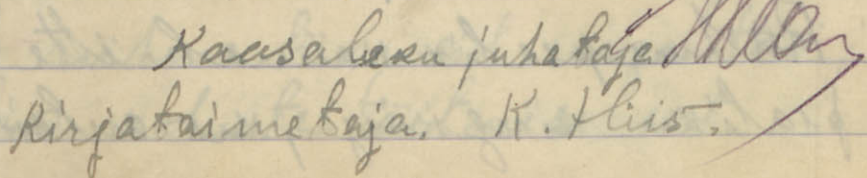 Kaasaleku juhataja
Kirjataimetaja. K. Hiis.